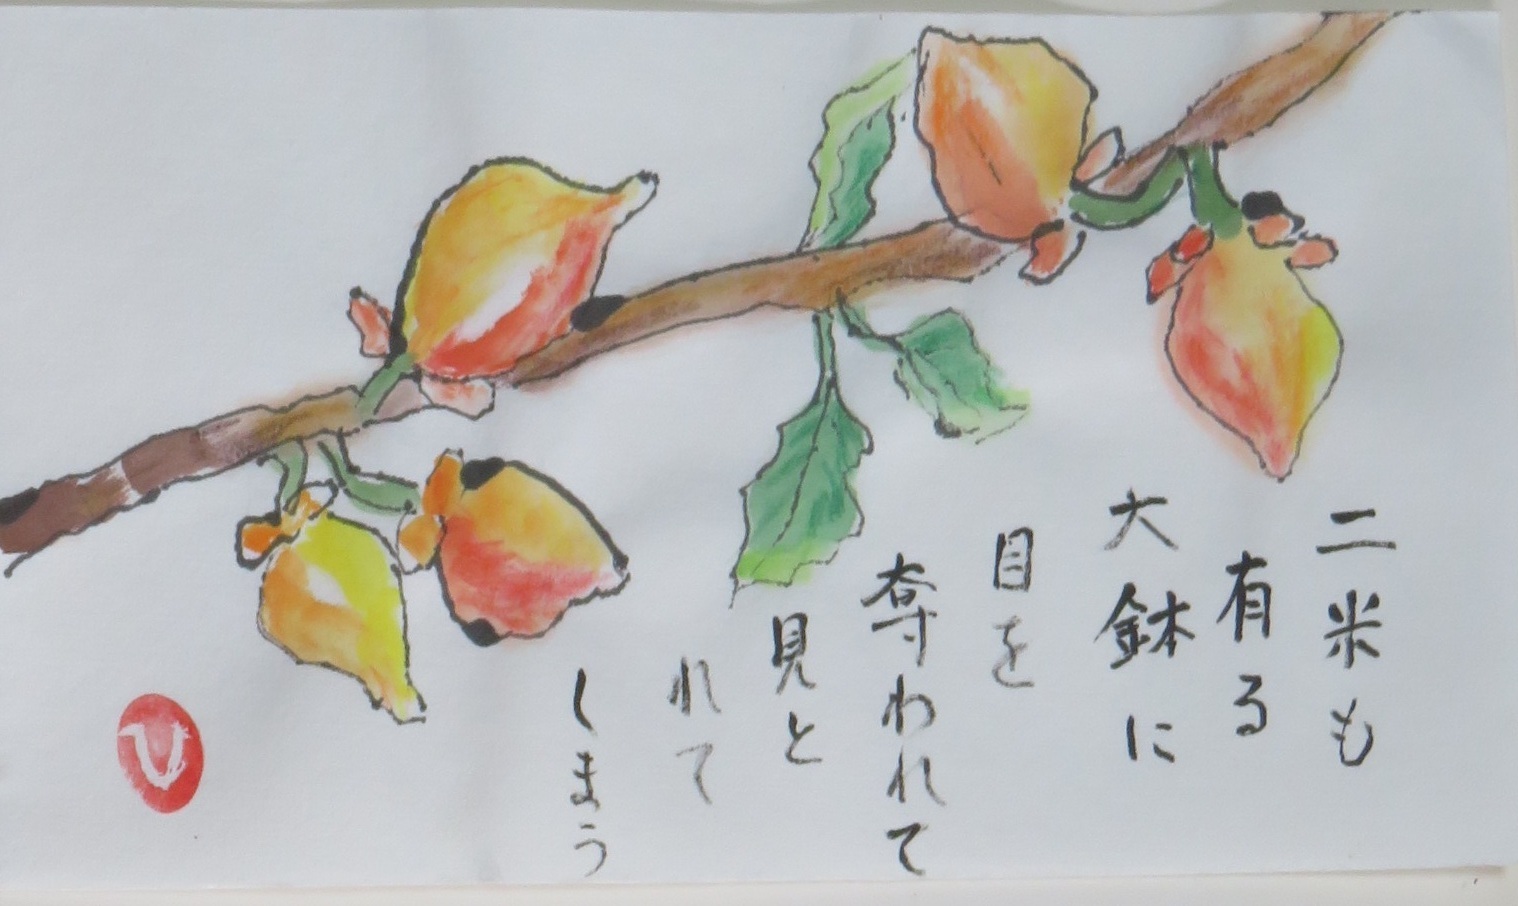 二米も
有る
大鉢に
目を
奪われて
見と
れて
しまう
ひ